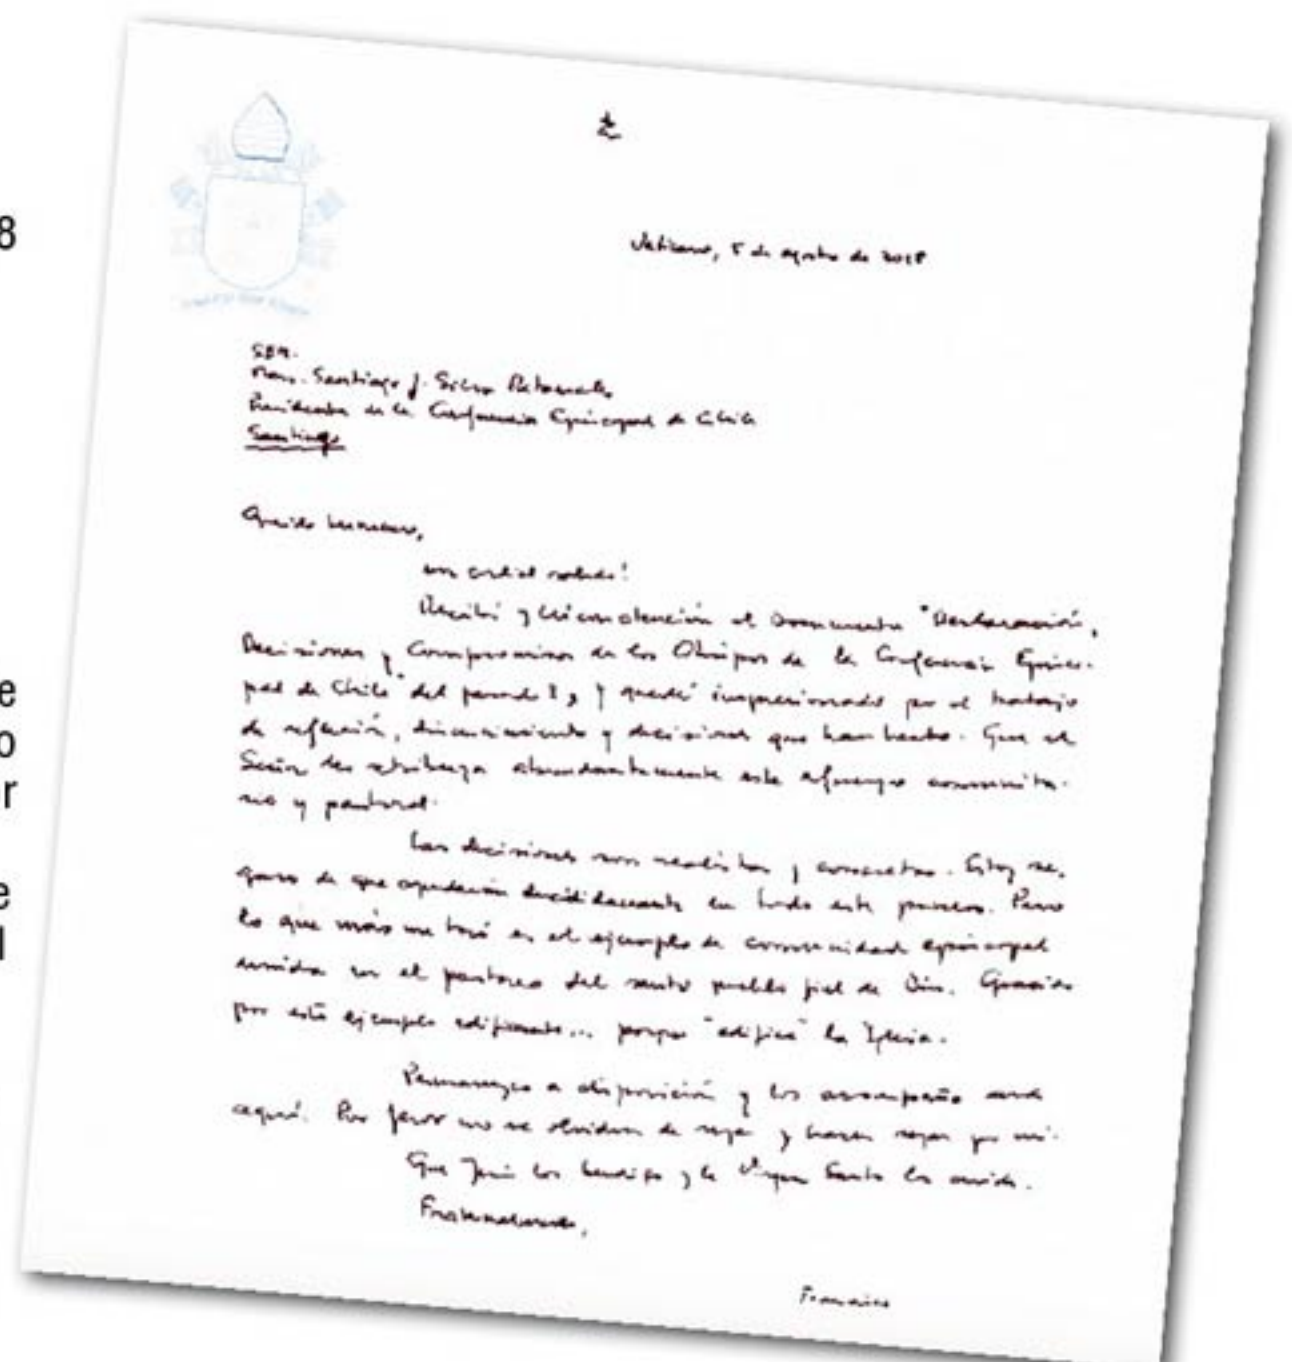 8
e
o
r
e
l
Vaticano, 5 de agosto de 2018
S.E.R.
Mons. Santiago J. Silva Retamales
Presidente de la Conferencia Episcopal de Chile
Santiago
Querido hermano,
un cordial saludo!
Recibí y leí con atención el documento "Declaración,
Decisiones y Compromisos de los Obispos de la Conferencia Episco-
pal de Chile" del pasado 3, y quedé impresionado por el trabajo
de reflexión, discernimiento y decisiones que han hecho. Que el
Señor les retribuya abundantemente este esfuerzo comunita-
rio y pastoral.
Las decisiones son realistas y concretas. Estoy se-
guro de que ayudarán decididamente en todo este proceso. Pero
lo que más me tocó es el ejemplo de comunidad episcopal
unida en el pastoreo del santo pueblo fiel de Dios. Gracias
por este ejemplo edificante... porque "edifica" la Iglesia.
Permanezco a disposición y los acompaño desde
aquí. Por favor no se olviden de rezar y hacer rezar por mí.
Que Jesús los bendiga y la Virgen Santa los cuide.
Fraternalmente,
Francisco